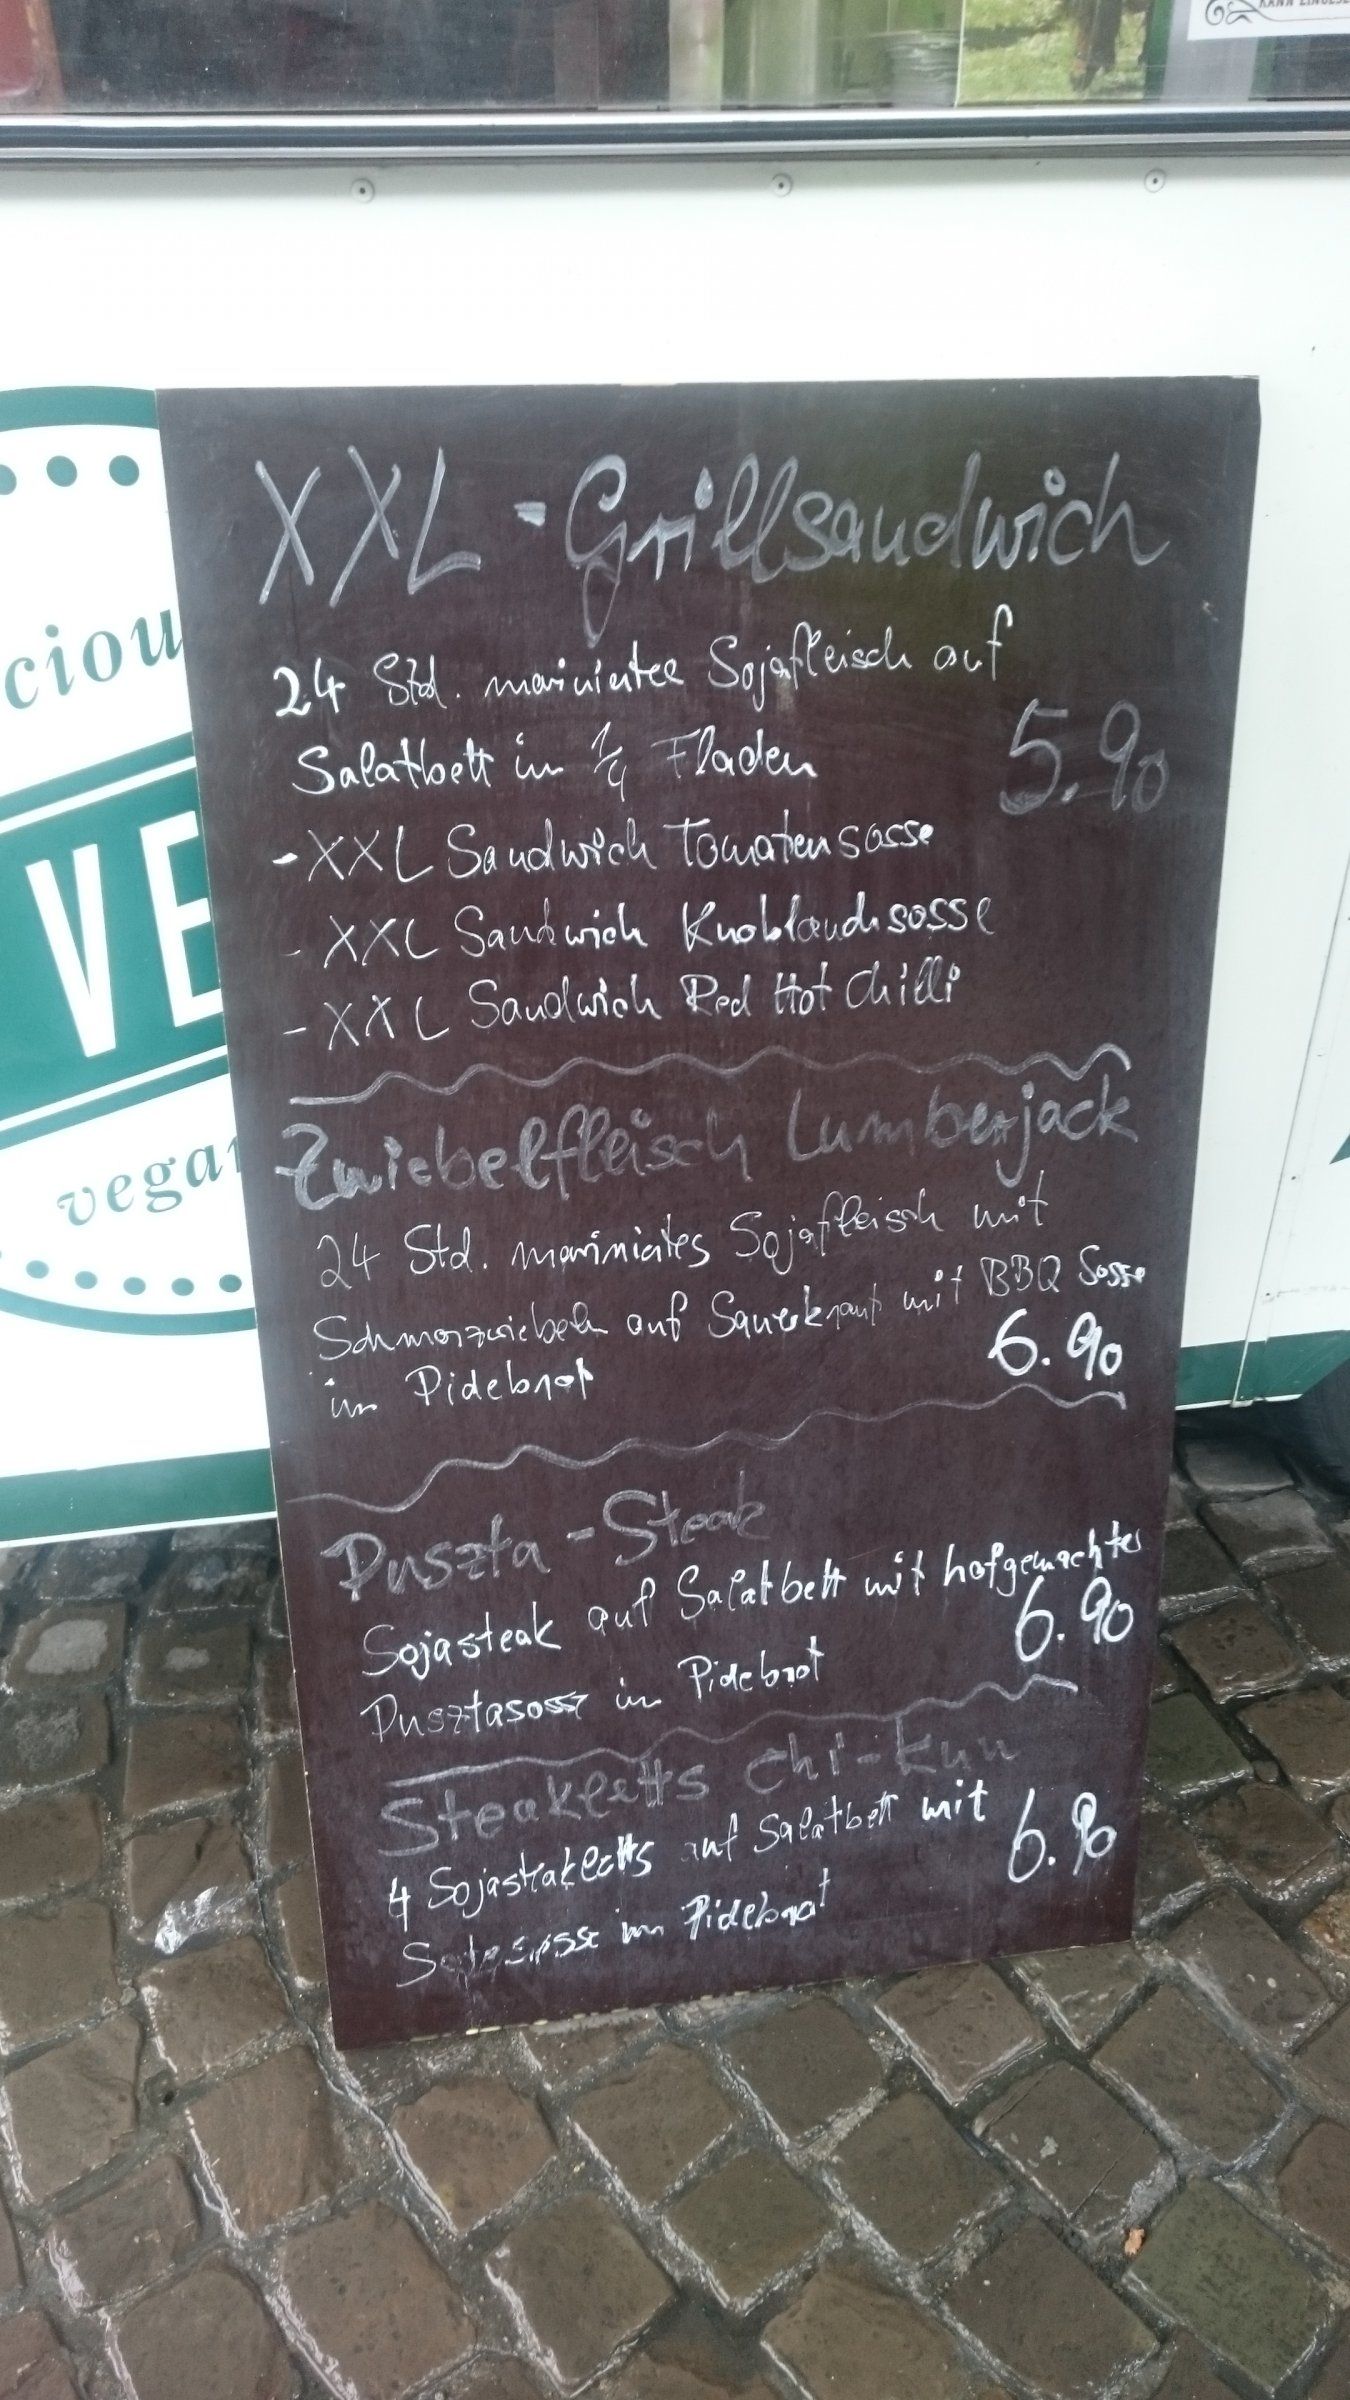 KANN
cious
VE
vegan
XXL - Grillsandwich
24 Std. marinirtee Sojafleisch auf
Salatbett in 1/4 Fladen
5.90
- XXL Sandwich Tomatensosse
- XXL Sandwich Knoblauchsosse
- XXL Sandwich Red Hot Chilli
Zwiebelfleisch Lumberjack
24 Std. mariniertes Sojafleisch mit
Schmorzwiebeln auf Sauerkraut mit BBQ Sosse
in Pidebrot
6.90
Puszta - Steak
Sojasteak auf Salatbett mit hofgemachter
Pusztasosse in Pidebrot
6.90
Steakletts Chi-Kun
4 Sojasteakletts auf Salatbett mit
im Pidebrot
6.90